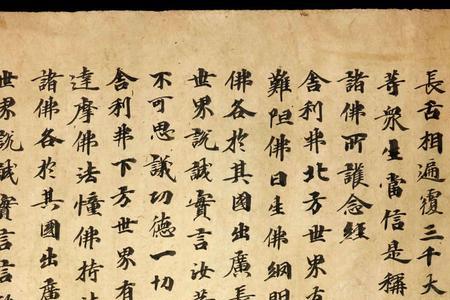 長舌相遍覆三千大
等衆生當信是稱
諸佛所護念經
舍利弗北方世界有
難阻佛日生佛網明
佛各於其國出廣長
世界説誠實言汝等
不可思議功德一切
舍利弗下方世界有
達摩佛法幢佛持法
諸佛各於其國出廣
世界説誠實言